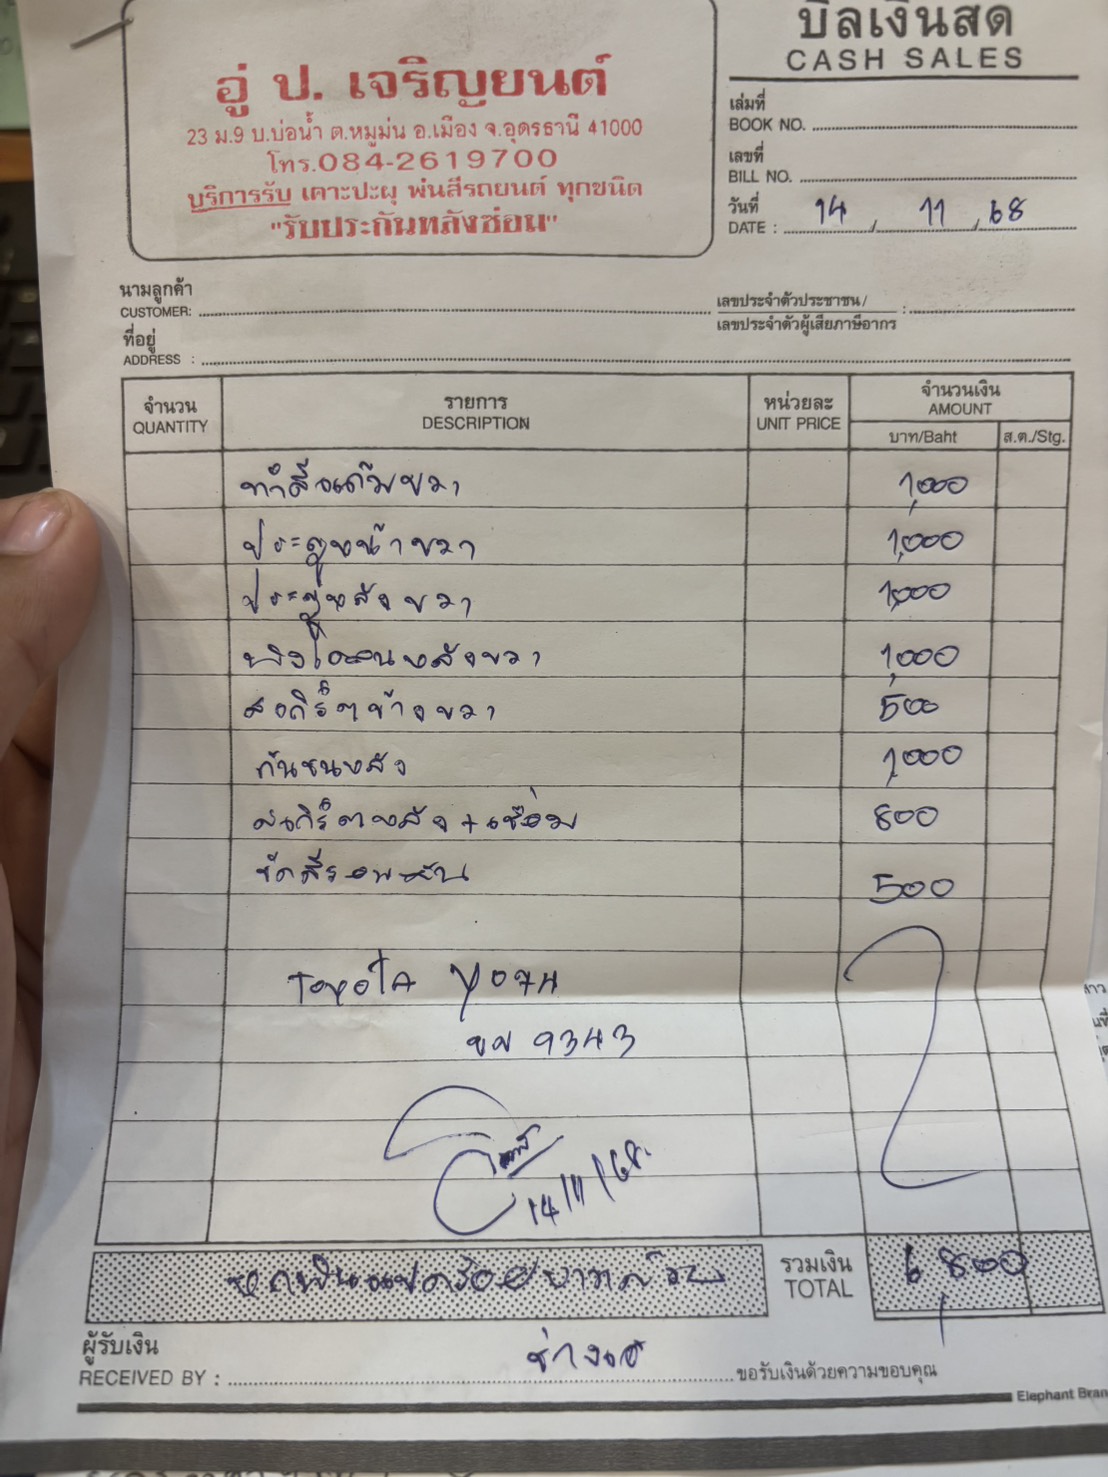 บิลเงินสด
CASH SALES
อู่ ป. เจริญยนต์
23 ม.9 บ.บ่อน้ำ ต.หมูม่น อ.เมือง จ.อุดรธานี 41000
โทร.084-2619700
บริการรับ เคาะปะผุ พ่นสีรถยนต์ ทุกชนิด
"รับประกันหลังซ่อม"
เล่มที่
BOOK NO.
เลขที่
BILL NO.
วันที่
DATE : 14 / 11 / 68
นามลูกค้า
CUSTOMER:
เลขประจำตัวประชาชน/
เลขประจำตัวผู้เสียภาษีอากร :
ที่อยู่
ADDRESS :
จำนวน
QUANTITY
รายการ
DESCRIPTION
หน่วยละ
UNIT PRICE
จำนวนเงิน
AMOUNT
บาท/Baht
ส.ต./Stg.
ทำสีแก้มขวา 1,000
ประตูหน้าขวา 1,000
ประตูหลังขวา 1,000
หลังขวา 1,000
สเกิร์ตข้างขวา 500
กันชนหลัง 1,000
สเกิร์ตหลัง + เชื่อม 800
ขัดสีรอบคัน 500
TOYOTA
9343
14/11/68.
หกพันแปดร้อยบาทถ้วน
รวมเงิน
TOTAL
6,800
ผู้รับเงิน
RECEIVED BY :
ช่าง
ขอรับเงินด้วยความขอบคุณ
Elephant Bran